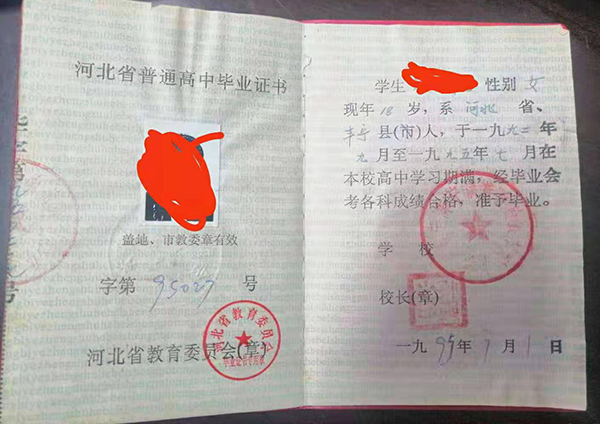 河北省普通高中毕业证书
盖地、市教委章有效
字第 95027 号
河北省教育委员会(章)
河北省教育委员会
学生 性别 女
现年 18 岁，系 河北 省、
县(市)人，于一九九二年
九月至一九九五年七月在
本校高中学习期满，经毕业会
考各科成绩合格，准予毕业。
学 校
校长(章)
一九95年7月1日